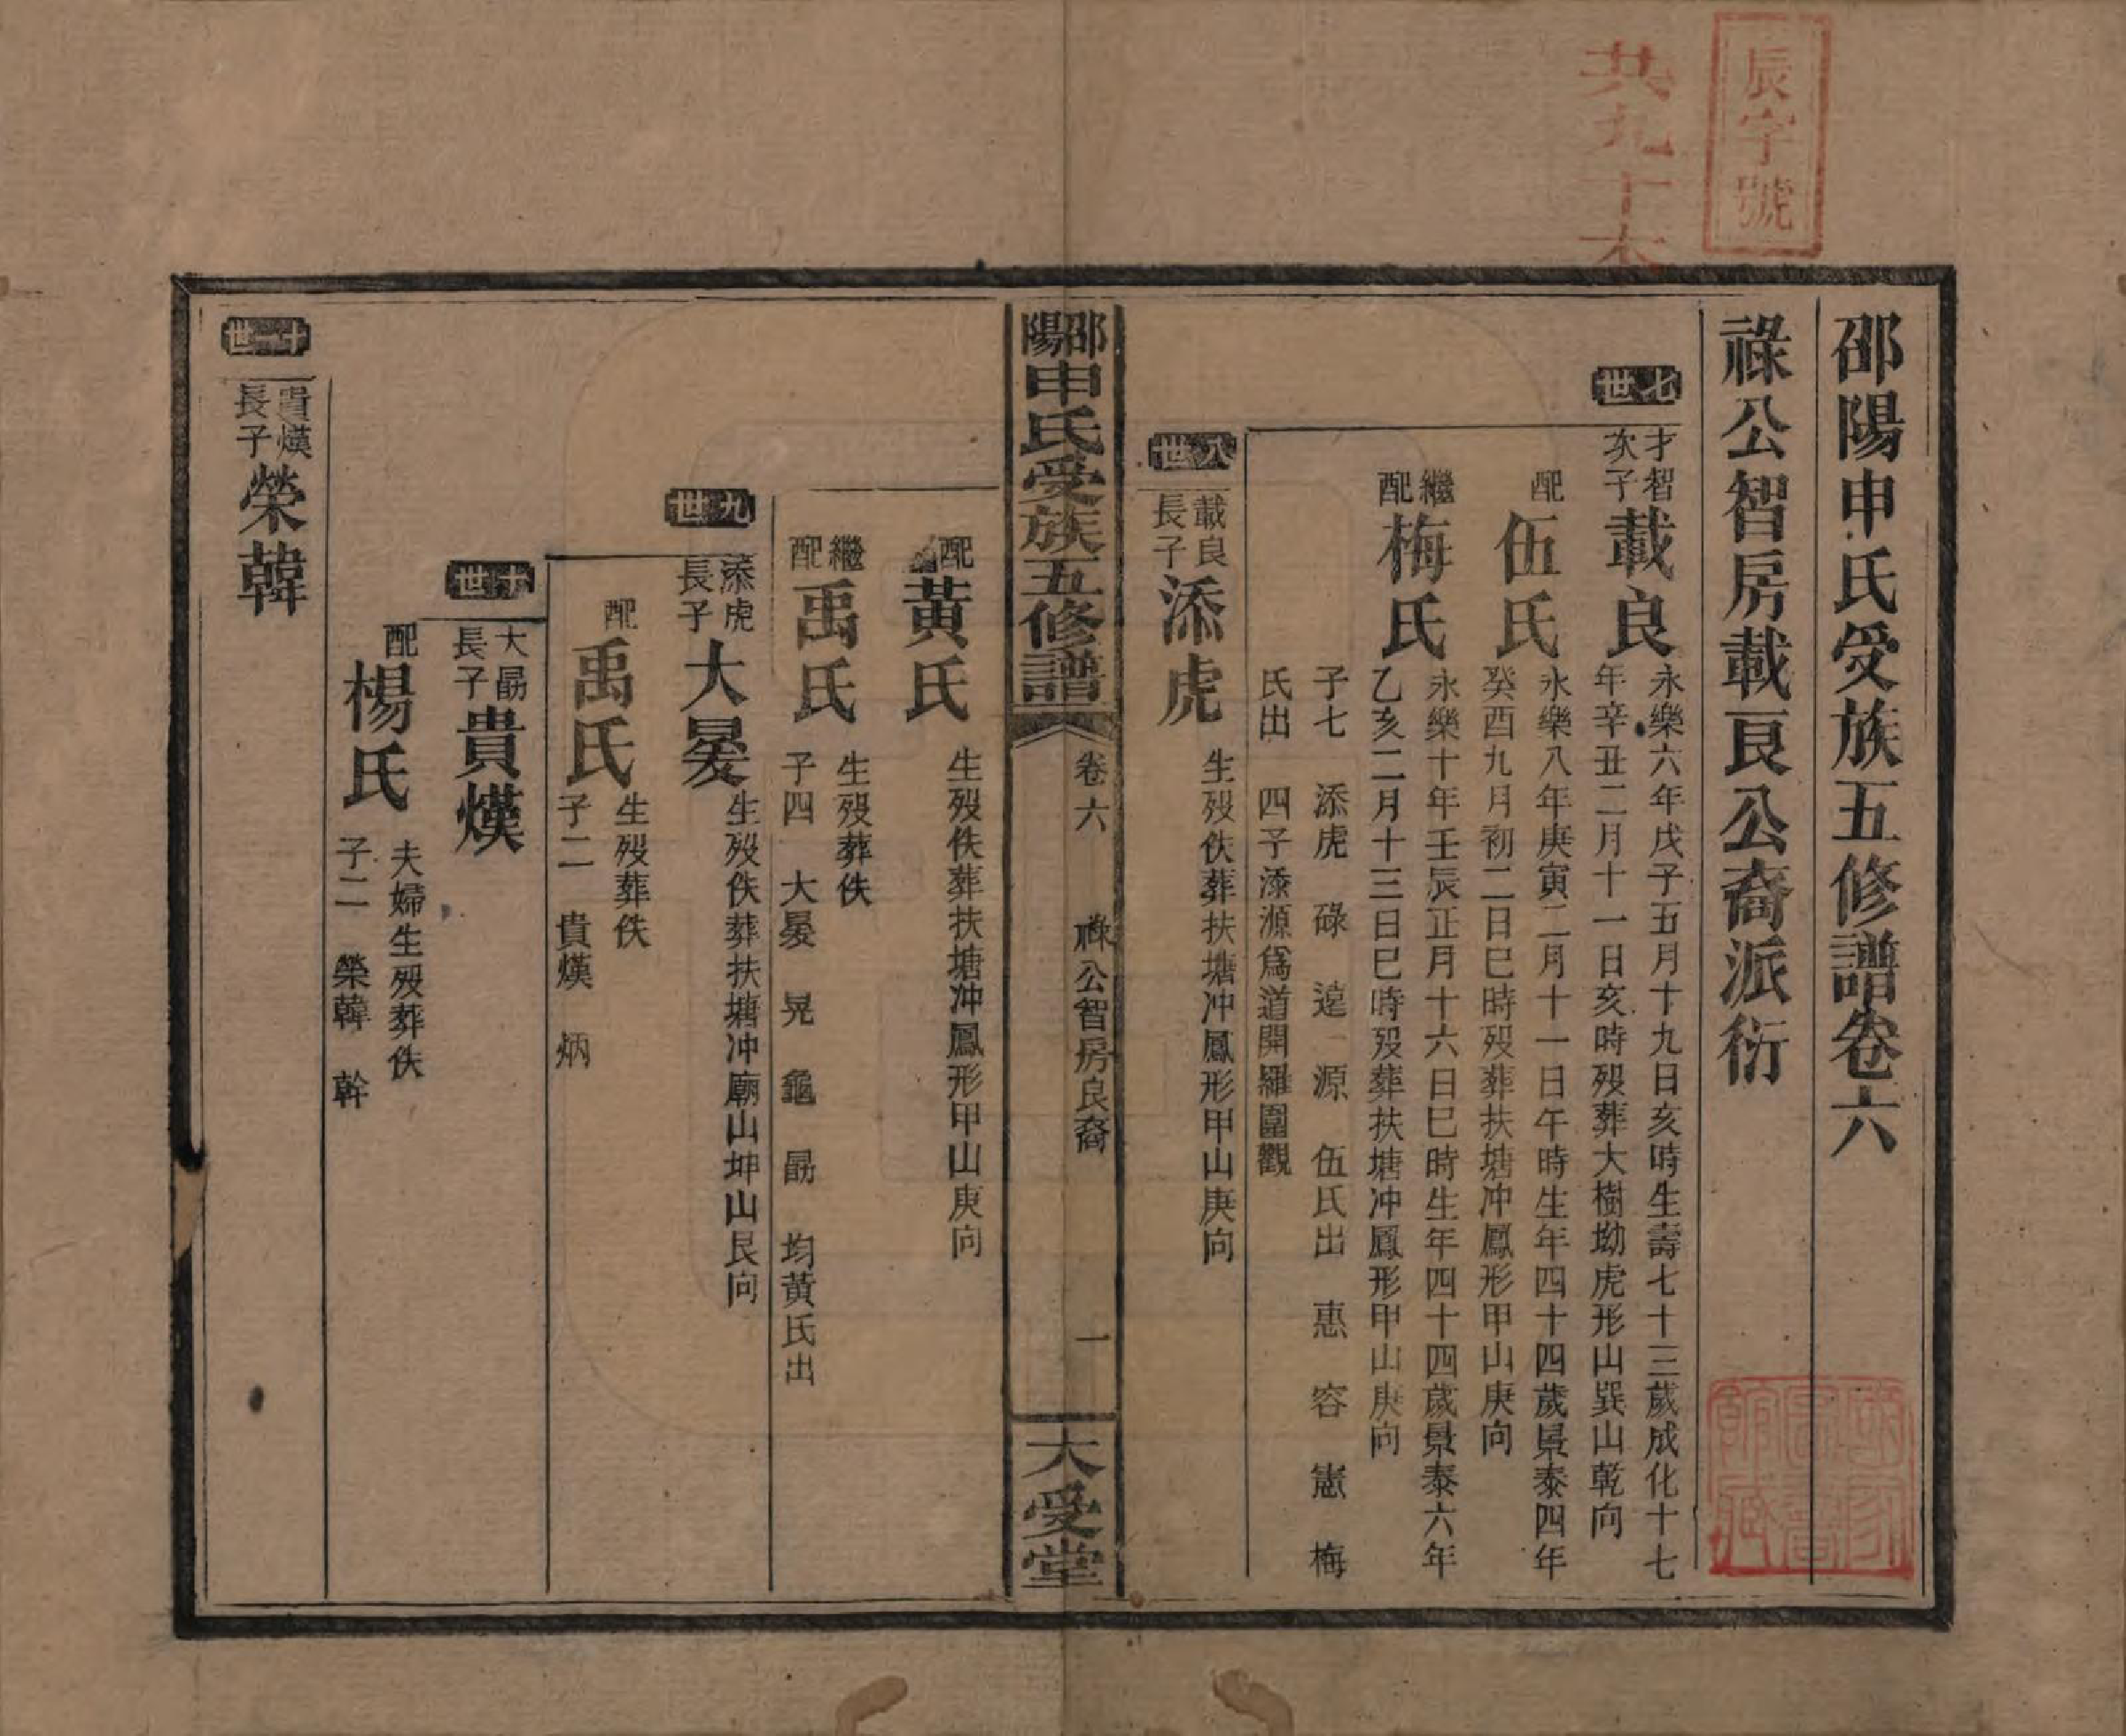 辰字號
共九十本
邵陽申氏受族五修譜卷六
祿公智房載良公裔派衍
七世
才智次子載良
永樂六年戊子五月十九日亥時生壽七十三歲成化十七
年辛丑二月十一日亥時歿葬大樹坳虎形山巽山乾向
配伍氏
永樂八年庚寅二月十一日午時生年四十四歲景泰四年
癸酉九月初二日巳時歿葬扶塘冲鳳形甲山庚向
繼配梅氏
永樂十年壬辰正月十六日巳時生年四十四歲景泰六年
乙亥二月十三日巳時歿葬扶塘冲鳳形甲山庚向
子七 添虎 碌 遑 源 伍氏出 惠 容 憲 梅
氏出 四子添源爲道開羅圍觀
八世
載良長子添虎
生歿佚葬扶塘冲鳳形甲山庚向
邵陽申氏受族五修譜
卷六 祿公智房良裔 一
大受堂
配黃氏
生歿佚葬扶塘冲鳳形甲山庚向
繼配禹氏
生歿葬佚
子四 大晸 晃 龜 勗 均黃氏出
九世
添虎長子大晸
生歿佚葬扶塘冲廟山坤山艮向
配禹氏
生歿葬佚
子二 貴熯 炳
十世
大勗長子貴熯
配楊氏
夫婦生歿葬佚
子二 榮韓 幹
十一世
貴熯長子榮韓